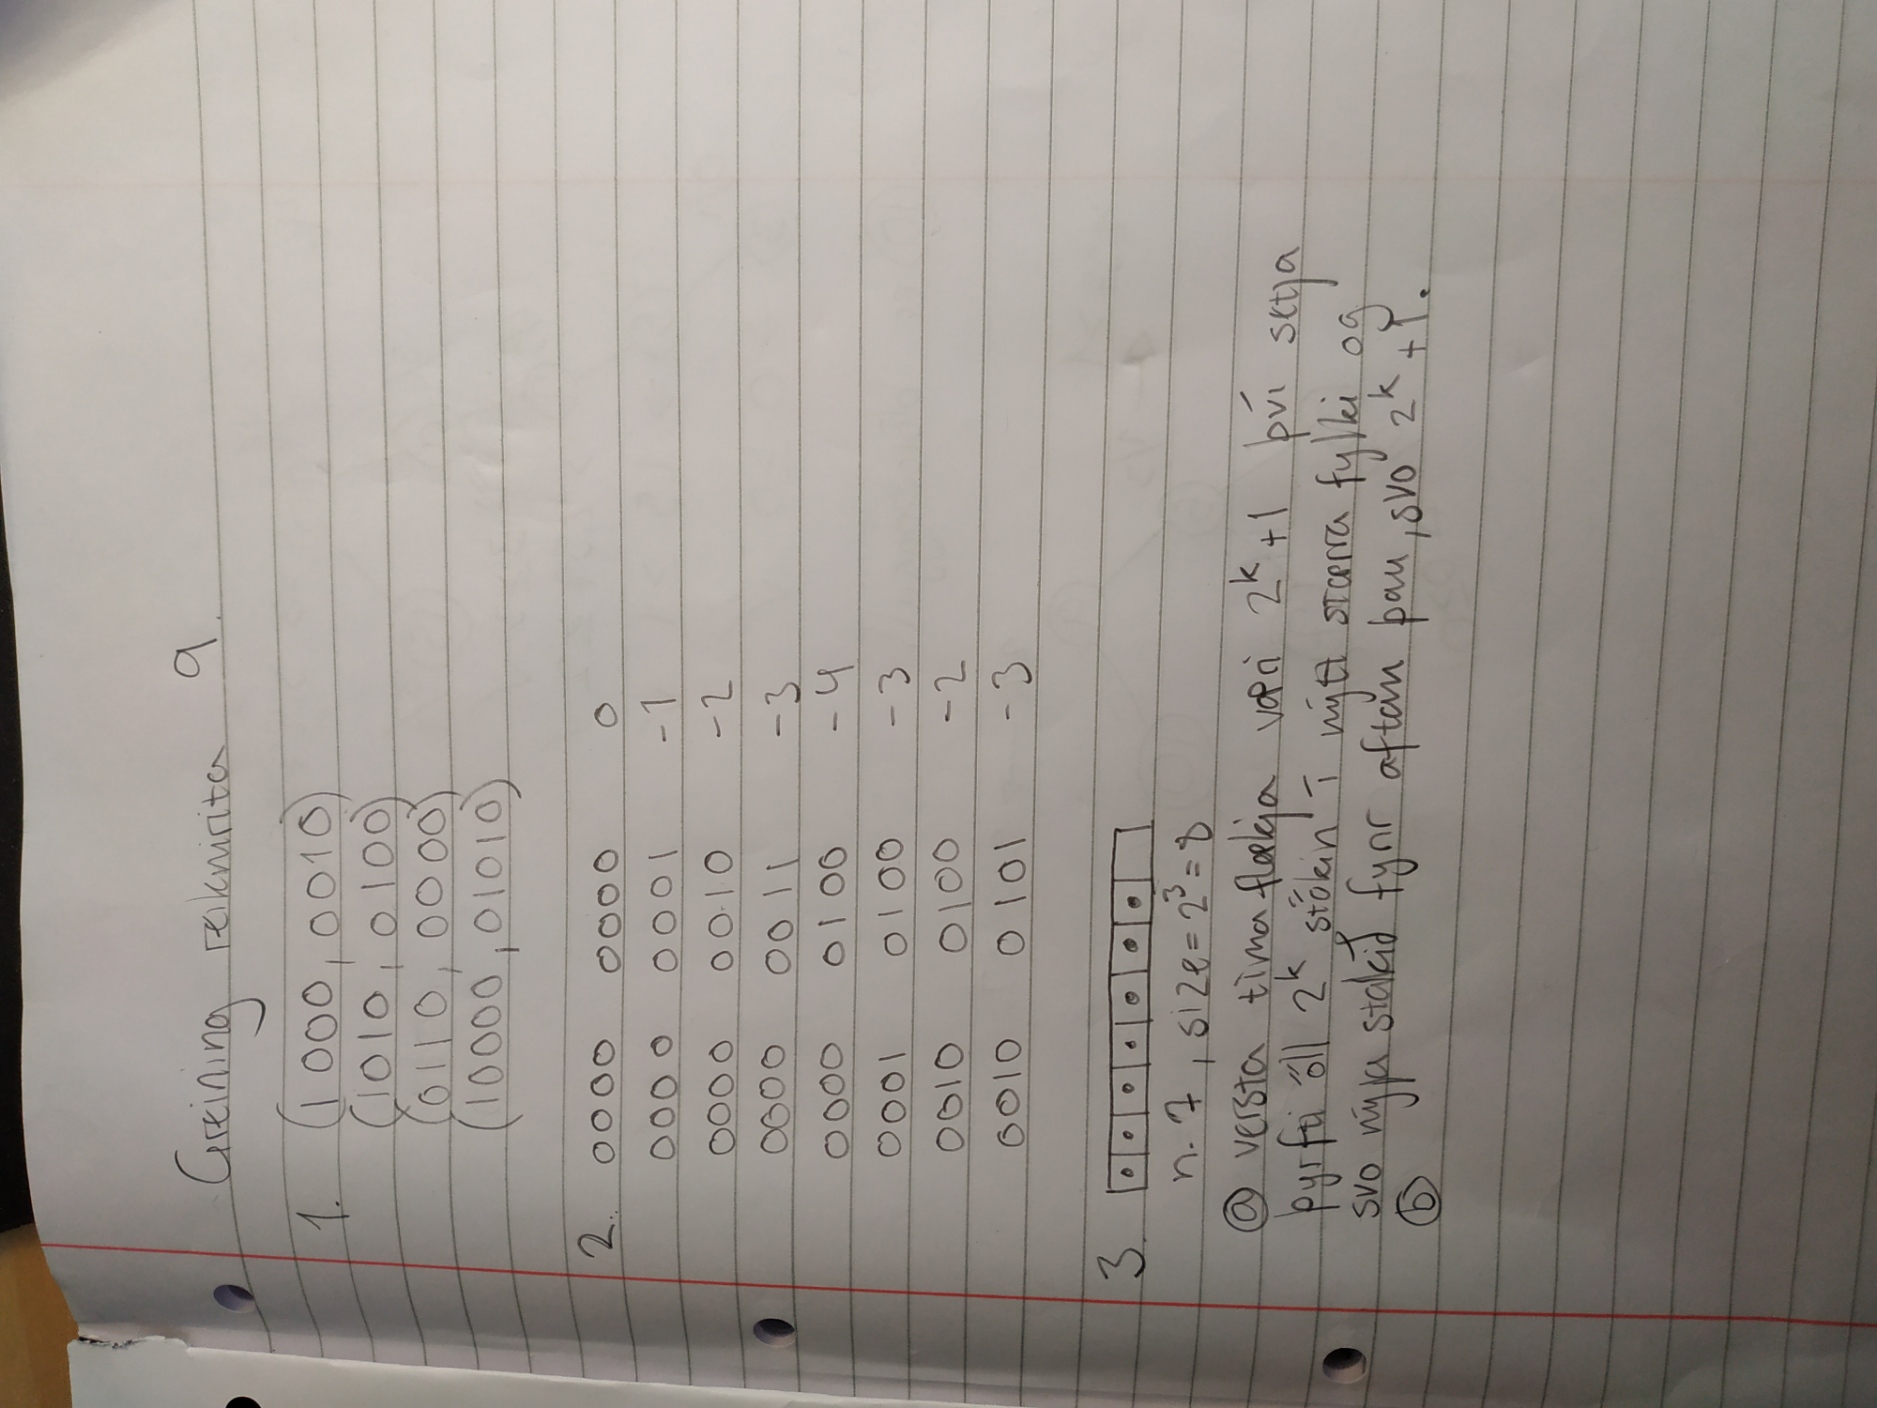 Greining reiknirita 9.
1. (1000, 0010)
(1010, 0100)
(0110, 0000)
(10000, 01010)
2. 0000 0000 0
0000 0001 -1
0000 0010 -2
0000 0011 -3
0000 0100 -4
0001 0100 -3
0010 0100 -2
0010 0101 -3
3.
n. 7, size = 2³ = 8
ⓐ versta tímaflækja væri 2ᵏ+1 því setja
þyrfti öll 2ᵏ stökin í nýtt stærra fylki og
svo nýja stakið fyrir aftan þau, svo 2ᵏ+1.
ⓑ